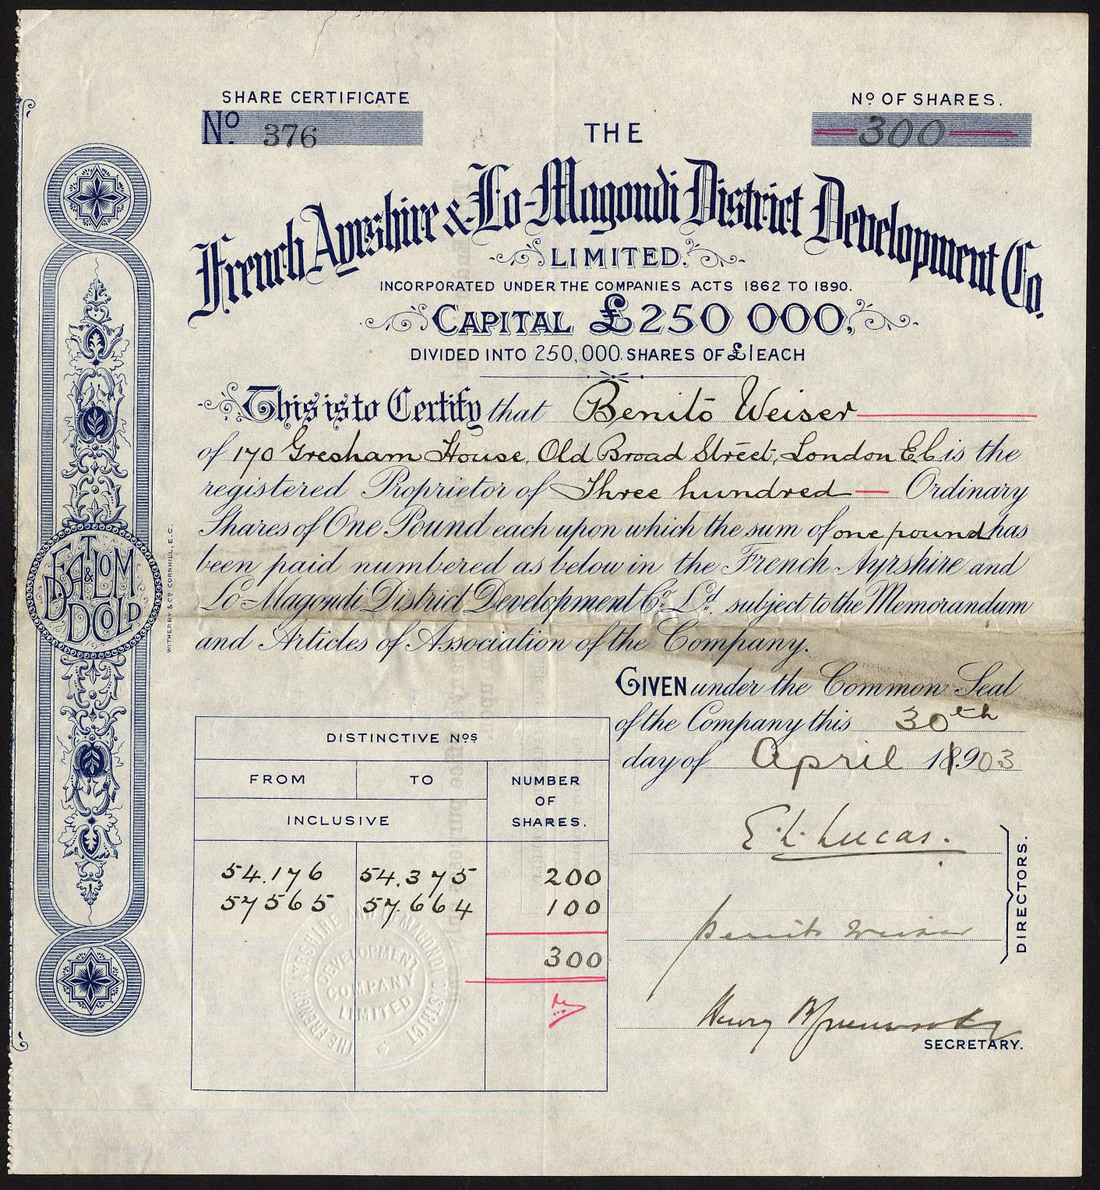 SHARE CERTIFICATE
Nº 376
Nº OF SHARES.
300
THE
French Ayrshire & Lo-Magondi District Development Co.
LIMITED.
INCORPORATED UNDER THE COMPANIES ACTS 1862 TO 1890.
CAPITAL £250 000,
DIVIDED INTO 250,000 SHARES OF £1 EACH
This is to Certify that Benito Weiser
of 170 Gresham House, Old Broad Street, London E.C is the
registered Proprietor of Three hundred Ordinary
Shares of One Pound each upon which the sum of one pound has
been paid numbered as below in the French Ayrshire and
Lo-Magondi District Development Cº. Lᵈ. subject to the Memorandum
and Articles of Association of the Company.
GIVEN under the Common Seal
of the Company this 30th
day of April 1903
DISTINCTIVE Nºs
FROM TO NUMBER OF SHARES.
INCLUSIVE
54.176 54.375 200
57565 57.664 100
300
E. L. Lucas.
Benito Weiser
DIRECTORS.
Henry
SECRETARY.
THE FRENCH AYRSHIRE AND LO MAGONDI DISTRICT
DEVELOPMENT
COMPANY
LIMITED
WITHERBY & Cº CORNHILL, E.C.